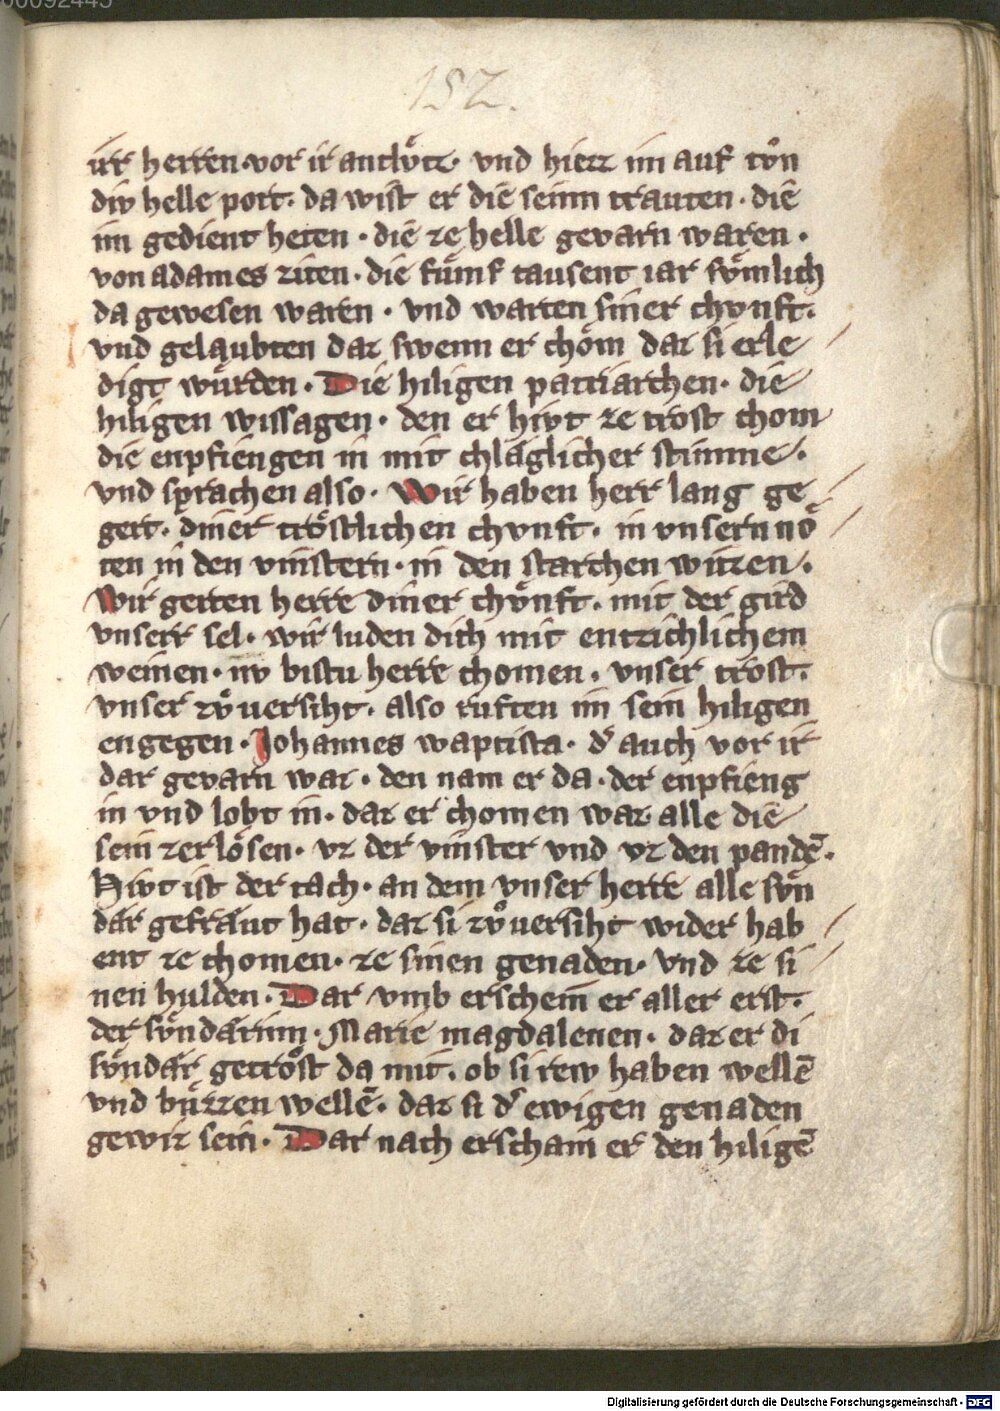 00092445
152.
irr herren vor ir antlvͤtz. vnd hiezz im auf tvͦn
div helle port. da wist er die seinn trauten. die
im gedient heten. die ze helle gevarn waren.
von adames ziten. die fuͤmf tausent iar svͤmlich
da gewesen waren. vnd warten siner chvnft.
vnd gelaubten daz swenn er choͤm daz si erle
digt wuͤrden. Die hiligen patriarchen. die
hiligen wissagen. den er hivt ze trost chom
die enpfiengen in mit chlaͤglicher stimme.
vnd sprachen also. Wir haben herr lang ge
gert. diner troͤstlichen chvnft. in vnsern noͤ
ten in den vinstern. in den starchen witzen.
Wir gerten herre diner chvͤnft. mit der gird
vnserr sel. wir luden dich mit entzichlichem
weinen. nv bistu herre chomen. vnser trost.
vnser zvͦuersiht. also ruften im sein hiligen
engegen. Johannes waptista. dˀ auch vor ir
dar gevarn waz. den nam er da. der enpfieng
in vnd lobt in. daz er chomen waz alle die
sein zerloͤsen. vz der vinster vnd vz den pandē.
Hivt ist der tach. an dem vnser herre alle svͤn
daͤr gefraͤut hat. daz si zvͦuersiht wider hab
ent ze chomen. ze sinen genaden. vnd ze si
nen hulden. Dar vmb erschein er aller erst.
der svͤndaͤrinn. Marie magdalenen. daz er di
svͤndaͤr getroͤst da mit. ob si rew haben wellē
vnd buͤzzen wellē. daz si dˀ ewigen genaden
gewiz sein. Dar nach erscham er den hiligē
Digitalisierung gefördert durch die Deutsche Forschungsgemeinschaft - DFG